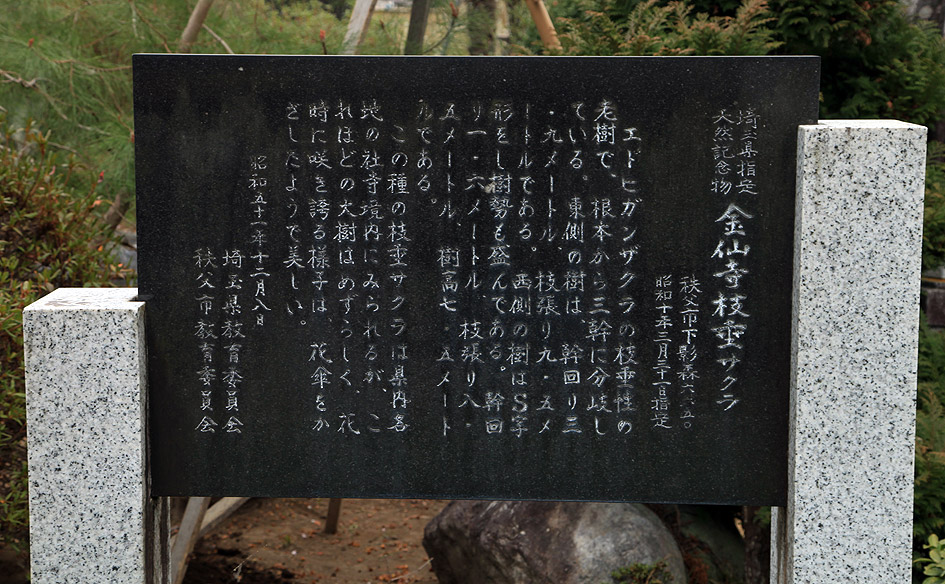 埼玉県指定
天然記念物
金仙寺枝垂サクラ
秩父市下影森六六五〇
昭和十年三月三十一日指定
エドヒガンザクラの枝垂性の
老樹で、根本から三幹に分岐し
ている。東側の樹は、幹回り三
・九メートル、枝張り九・五メ
ートルである。西側の樹はS字
形をし樹勢も盛んである。幹回
り一・六メートル、枝張り八・
五メートル、樹高七・五メート
ルである。
この種の枝垂サクラは県内各
地の社寺境内にみられるが、こ
れほどの大樹はめずらしく、花
時に咲き誇る様子は、花傘をか
ざしたようで美しい。
昭和五十一年十二月八日
埼玉県教育委員会
秩父市教育委員会